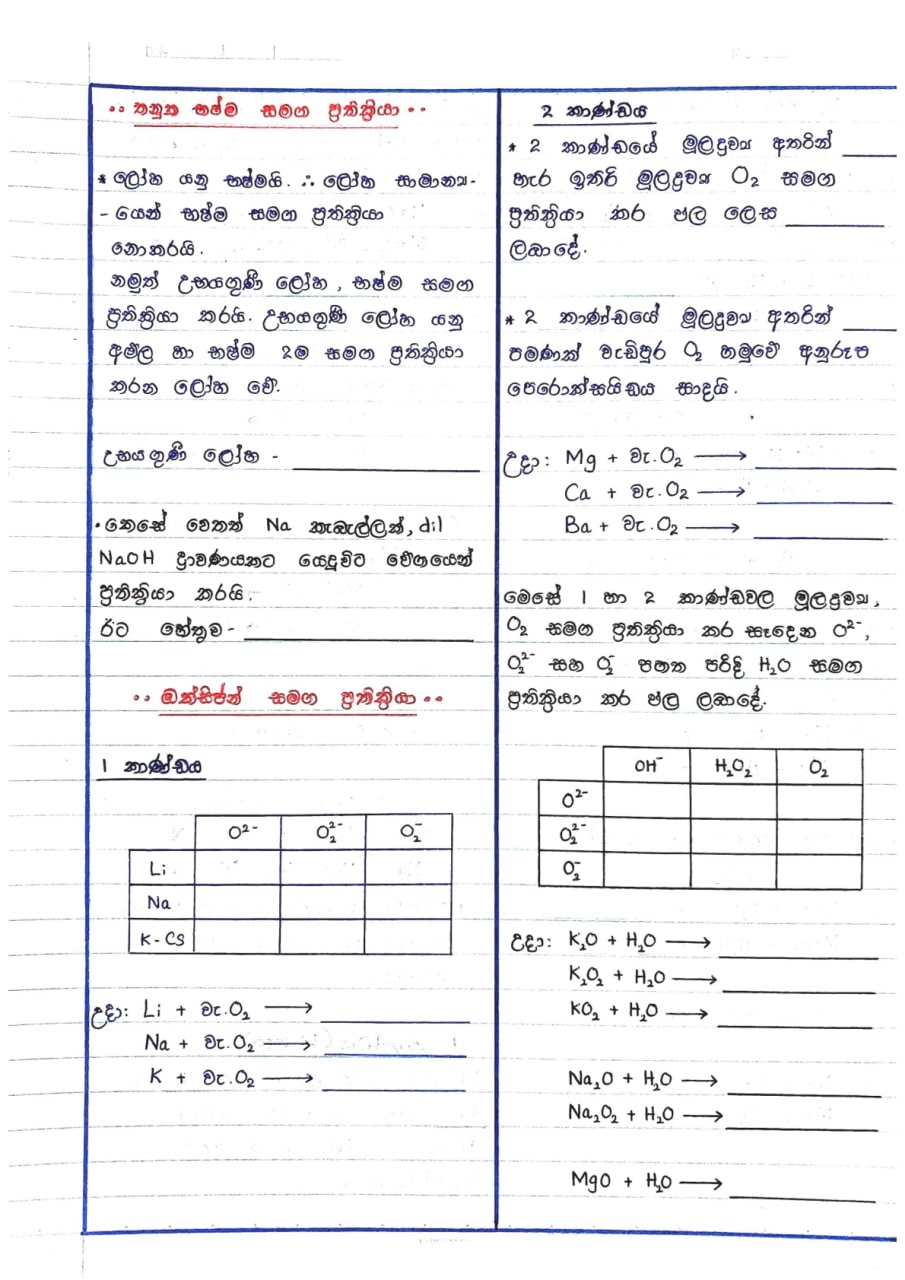 ·· තනුක භෂ්ම සමග ප්‍රතික්‍රියා ··
* ලෝහ යනු භෂ්මයි. ∴ ලෝහ සාමාන්‍ය-
- යෙන් භෂ්ම සමග ප්‍රතික්‍රියා
නොකරයි.
නමුත් උභයගුණී ලෝහ, භෂ්ම සමග
ප්‍රතික්‍රියා කරයි. උභයගුණී ලෝහ යනු
අම්ල හා භෂ්ම 2ම සමග ප්‍රතික්‍රියා
කරන ලෝහ වේ.
උභයගුණී ලෝහ - ______
• කෙසේ වෙතත් Na කැබැල්ලක්, dil
NaOH ද්‍රාවණයකට යෙදූවිට වේගයෙන්
ප්‍රතික්‍රියා කරයි.
ඊට හේතුව - ______
·· ඔක්සිජන් සමග ප්‍රතික්‍රියා ··
1 කාණ්ඩය
O²⁻ O₂²⁻ O₂⁻
Li
Na
K - Cs
උදා: Li + වැ.O₂ ⟶ ______
Na + වැ.O₂ ⟶ ______
K + වැ.O₂ ⟶ ______
2 කාණ්ඩය
* 2 කාණ්ඩයේ මූලද්‍රව්‍ය අතරින් ______
හැර ඉතිරි මූලද්‍රව්‍ය O₂ සමග
ප්‍රතික්‍රියා කර ඵල ලෙස ______
ලබාදේ.
* 2 කාණ්ඩයේ මූලද්‍රව්‍ය අතරින් ______
පමණක් වැඩිපුර O₂ හමුවේ අනුරූප
පෙරොක්සයිඩය සාදයි.
උදා: Mg + වැ.O₂ ⟶ ______
Ca + වැ.O₂ ⟶ ______
Ba + වැ.O₂ ⟶ ______
මෙසේ 1 හා 2 කාණ්ඩවල මූලද්‍රව්‍ය,
O₂ සමග ප්‍රතික්‍රියා කර සෑදෙන O²⁻,
O₂²⁻ සහ O₂⁻ පහත පරිදි H₂O සමග
ප්‍රතික්‍රියා කර ඵල ලබාදේ.
OH⁻ H₂O₂ O₂
O²⁻
O₂²⁻
O₂⁻
උදා: K₂O + H₂O ⟶ ______
K₂O₂ + H₂O ⟶ ______
KO₂ + H₂O ⟶ ______
Na₂O + H₂O ⟶ ______
Na₂O₂ + H₂O ⟶ ______
MgO + H₂O ⟶ ______